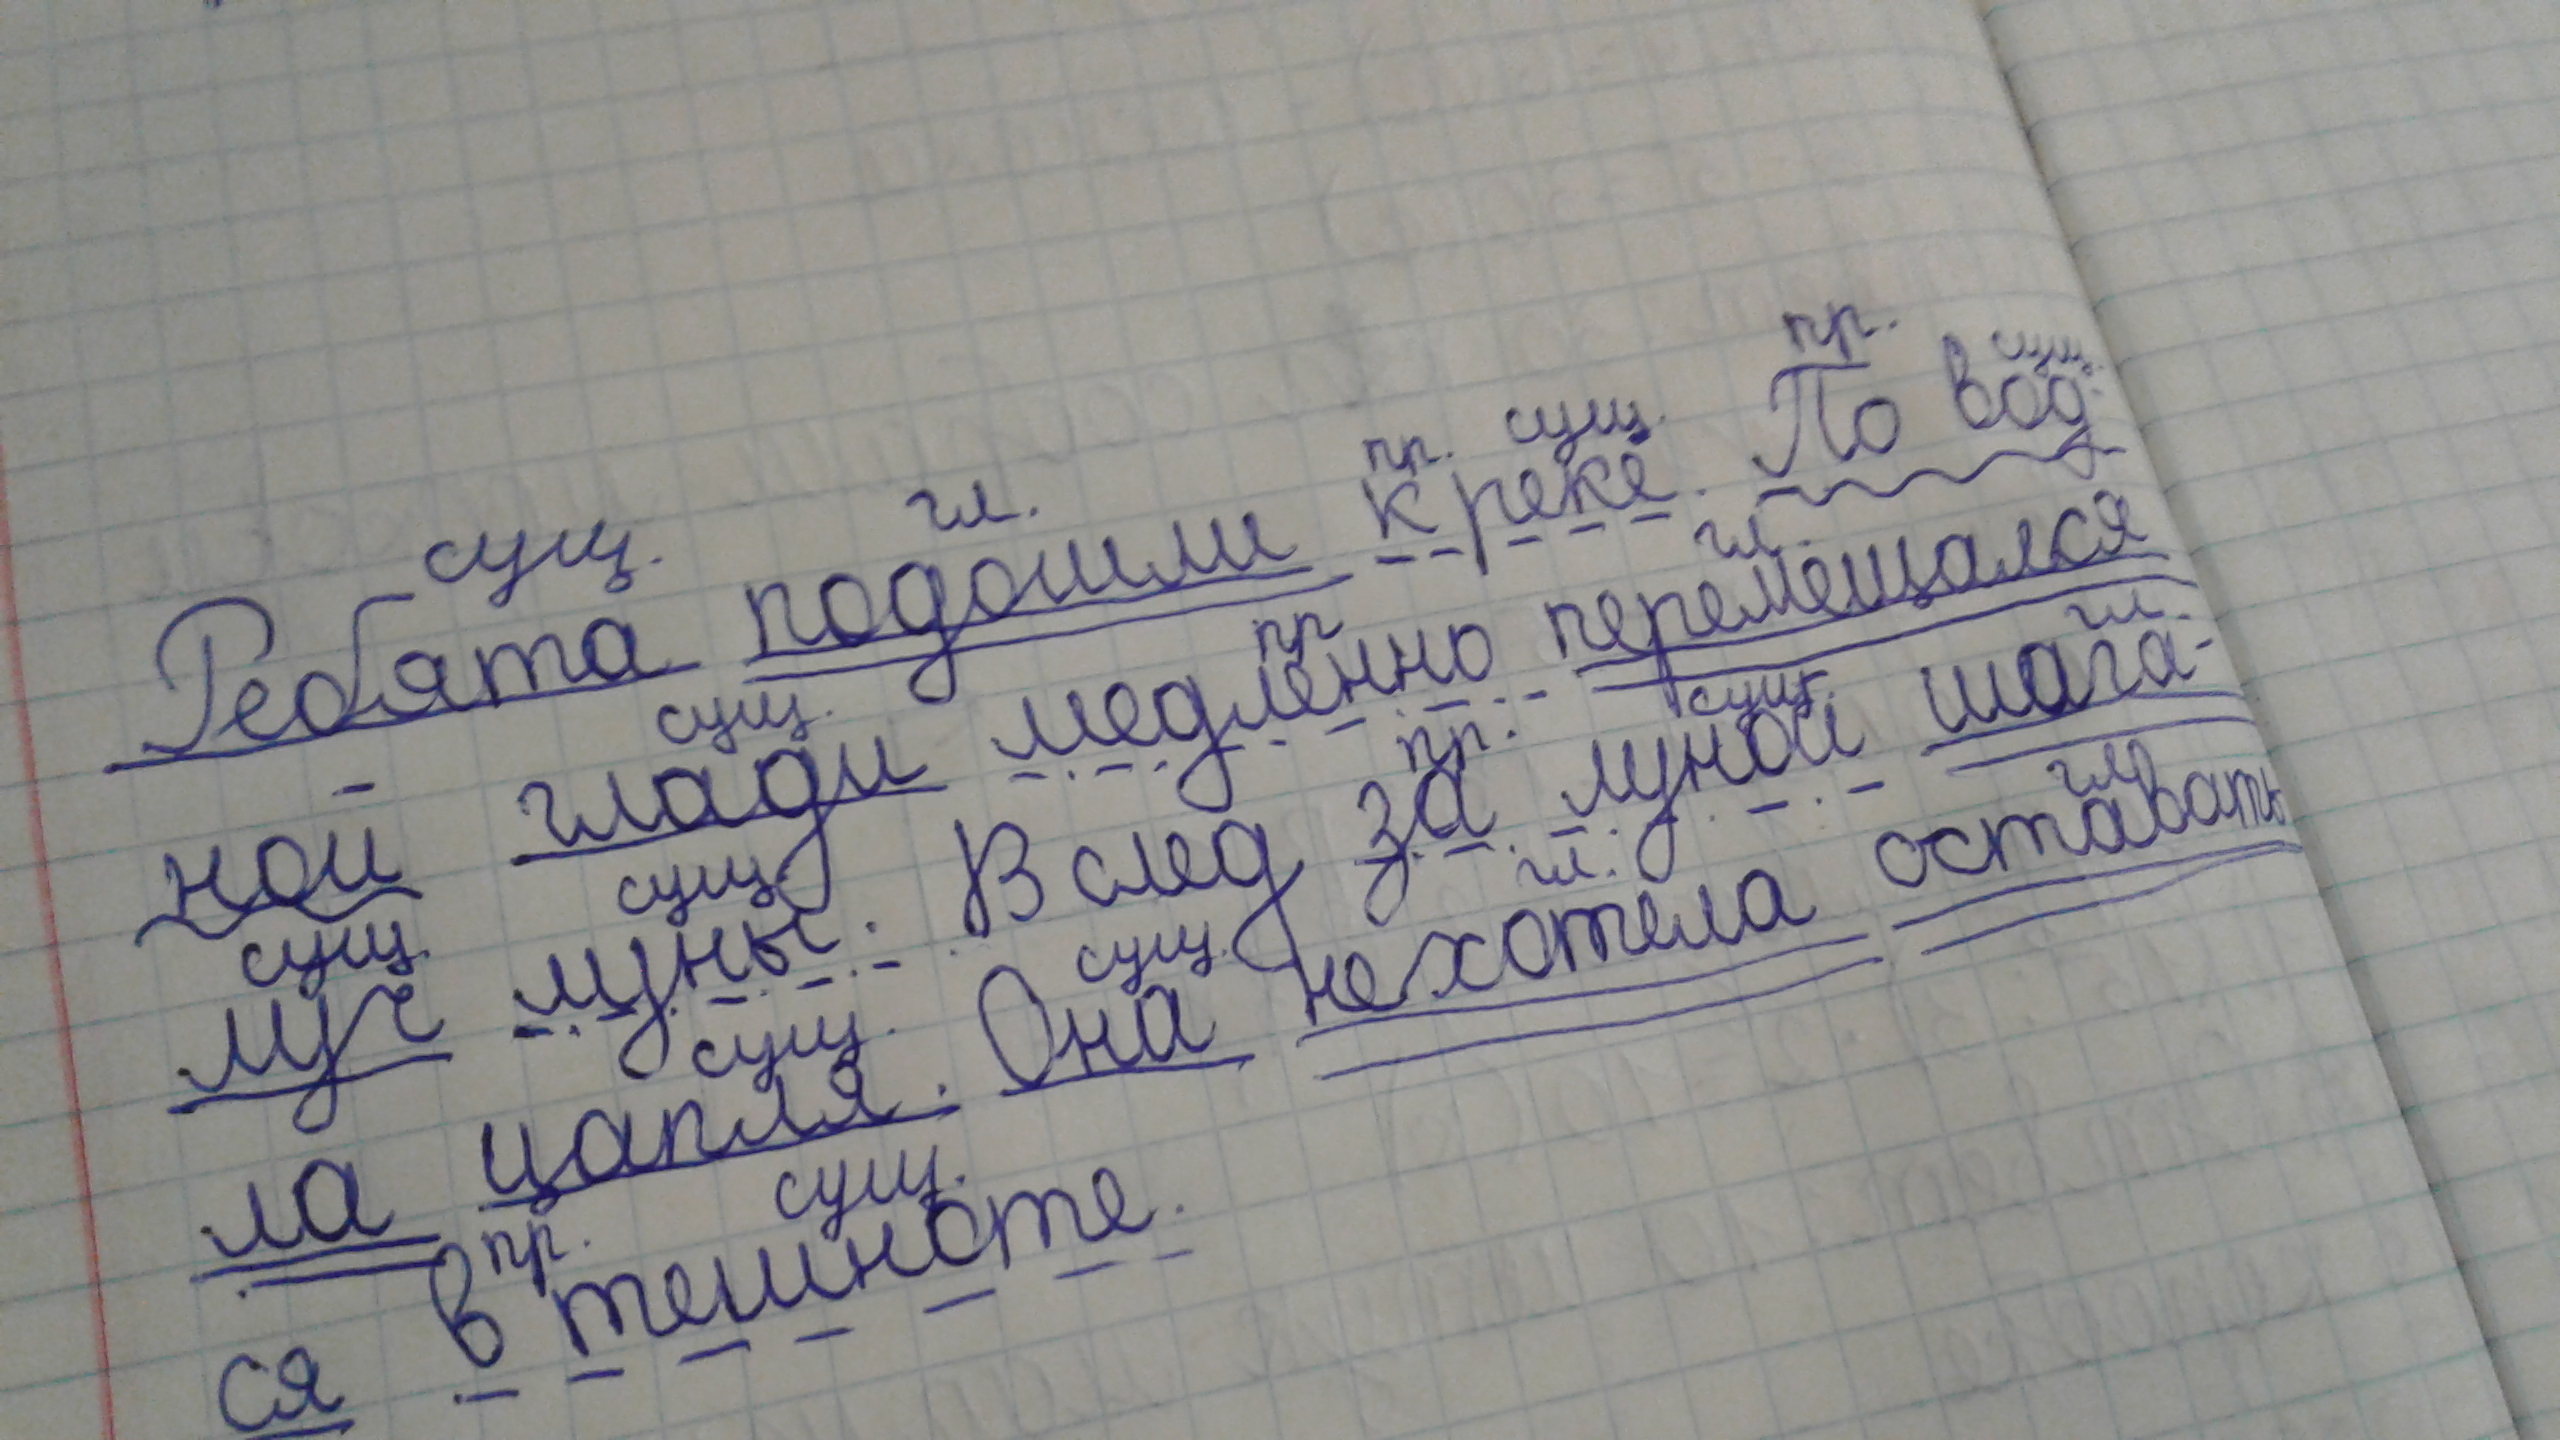 пр. сущ.
сущ. гл. пр. сущ.
Ребята подошли к реке. По вод-
сущ. пр гл.
ной глади медленно перемещался
сущ. сущ. пр. сущ. гл.
луч луны. В след за луной шага-
сущ. сущ. гл. гл
ла цапля. Она не хотела оставать
пр. сущ.
ся в темноте.